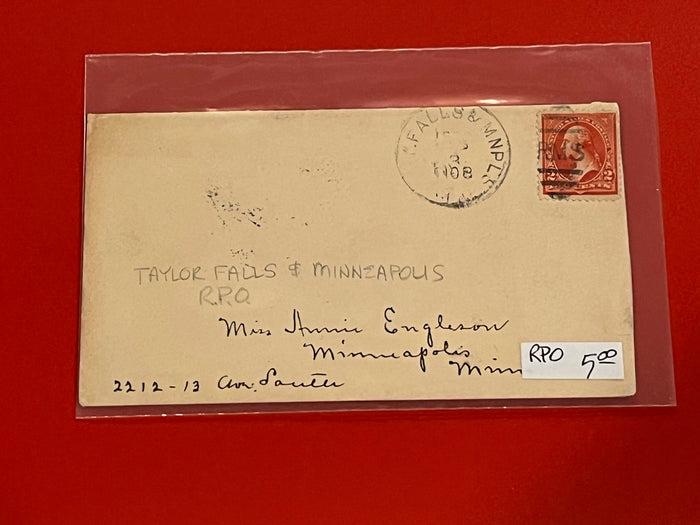 . FALLS & MNPLX
08
RMS
2 CENTS 2
TAYLOR FALLS & MINNEAPOLIS
R.P.O.
Miss Annie Engleson
Minneapolis
Minn
2212-13 Ave. South
RPO 5.00